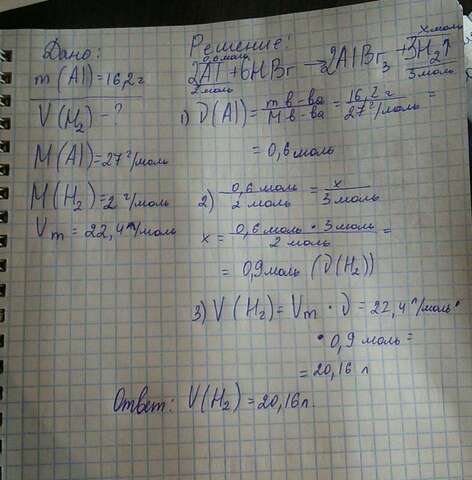 Дано:
m(Al)=16,2г
V(H₂) – ?
M(Al)=27 г/моль
M(H₂)=2 г/моль
Vm = 22,4 л/моль
Решение:
0,6моль x моль
2Al+6HBr → 2AlBr₃ + 3H₂↑
2моль 3моль
1) ν(Al) = m в-ва / M в-ва = 16,2 г / 27 г/моль =
= 0,6 моль
2) 0,6 моль / 2 моль = x / 3 моль
x = 0,6 моль * 3 моль / 2 моль =
= 0,9 моль (ν(H₂))
3) V(H₂) = Vm · ν = 22,4 л/моль·
· 0,9 моль =
= 20,16 л
Ответ: V(H₂) = 20,16 л.